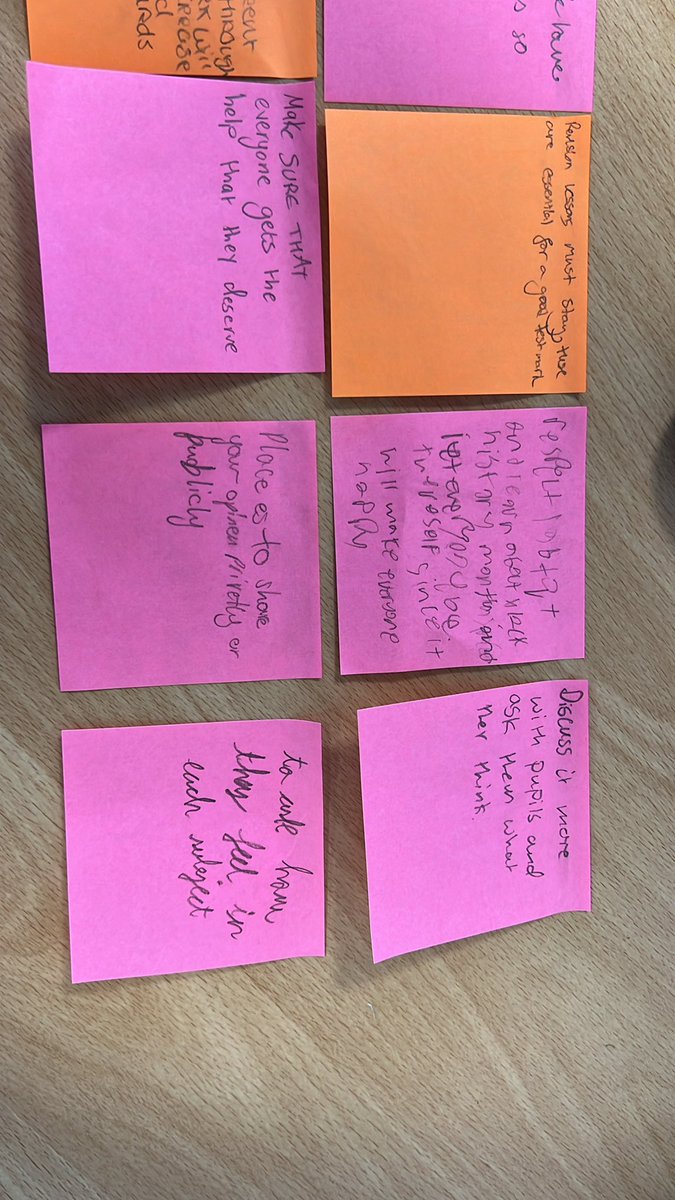 have,
so
Revision lessons must stay, these
are essential for a good test mark
respect lgbtq+
and learn about black
history month and
let everyone be
themself since it
will make everyone
happy
Discuss it more
with pupils and
ask them what
her think.
THROUGH
Make SURE THAT
everyone gets the
help that they deserve
Place es to share
your opinen privetly or
publicly
to ask how
they feel in
each subject